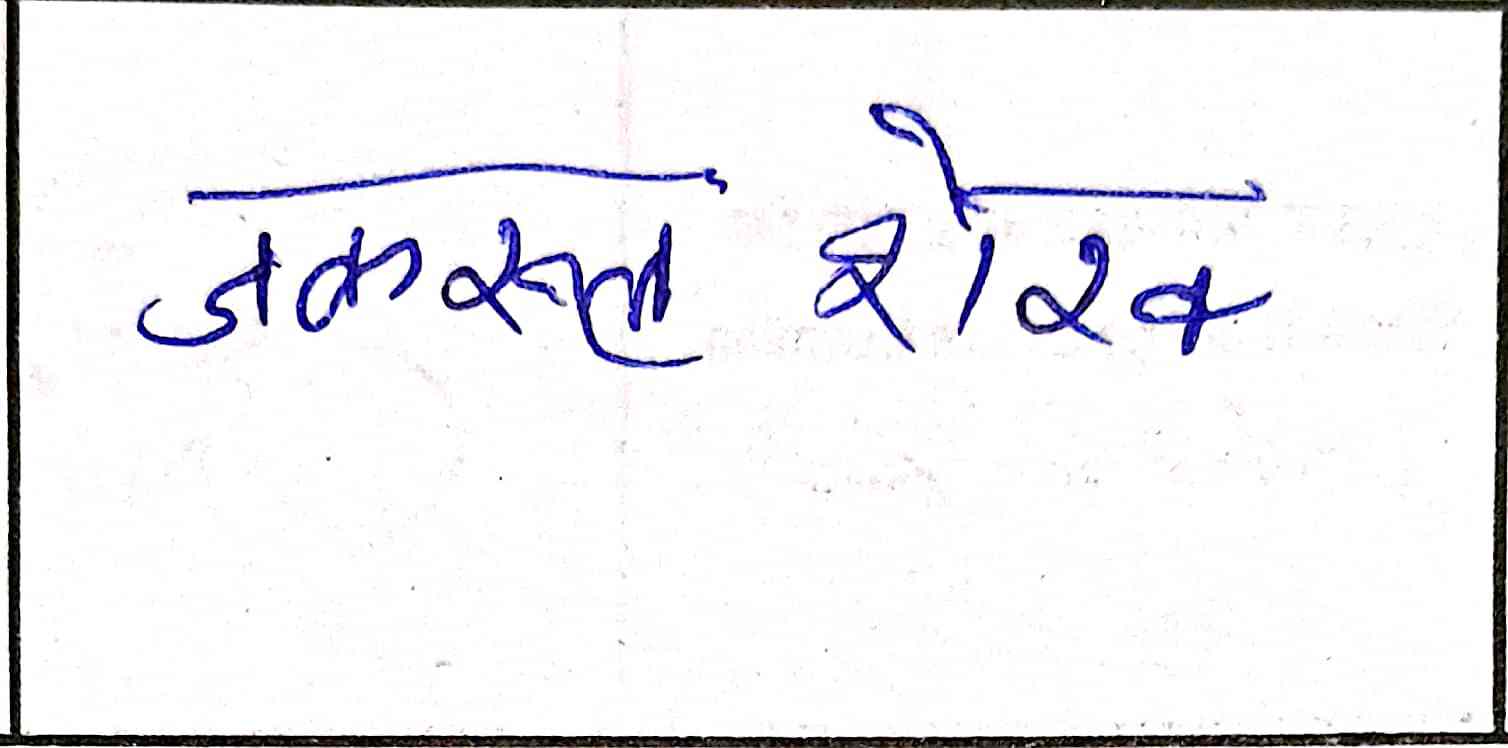 जकरूल शेख